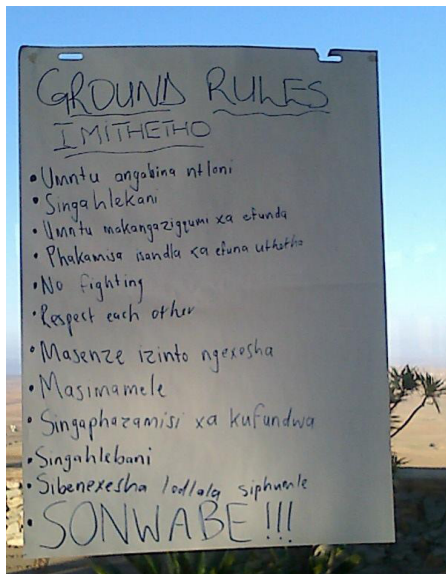 GROUND RULES
IMITHETHO
• Umntu angabina ntloni
• Singahlekani
• Umntu makangaziqqumi xa efunda
• Phakamisa isandla xa efuna uthetha
• No fighting
• Respect each other
• Masenze izinto ngexesha
• Masimamele
• Singaphazamisi xa kufundwa
• Singahlebani
• Sibenexesha lodlala siphumle
• SONWABE!!!